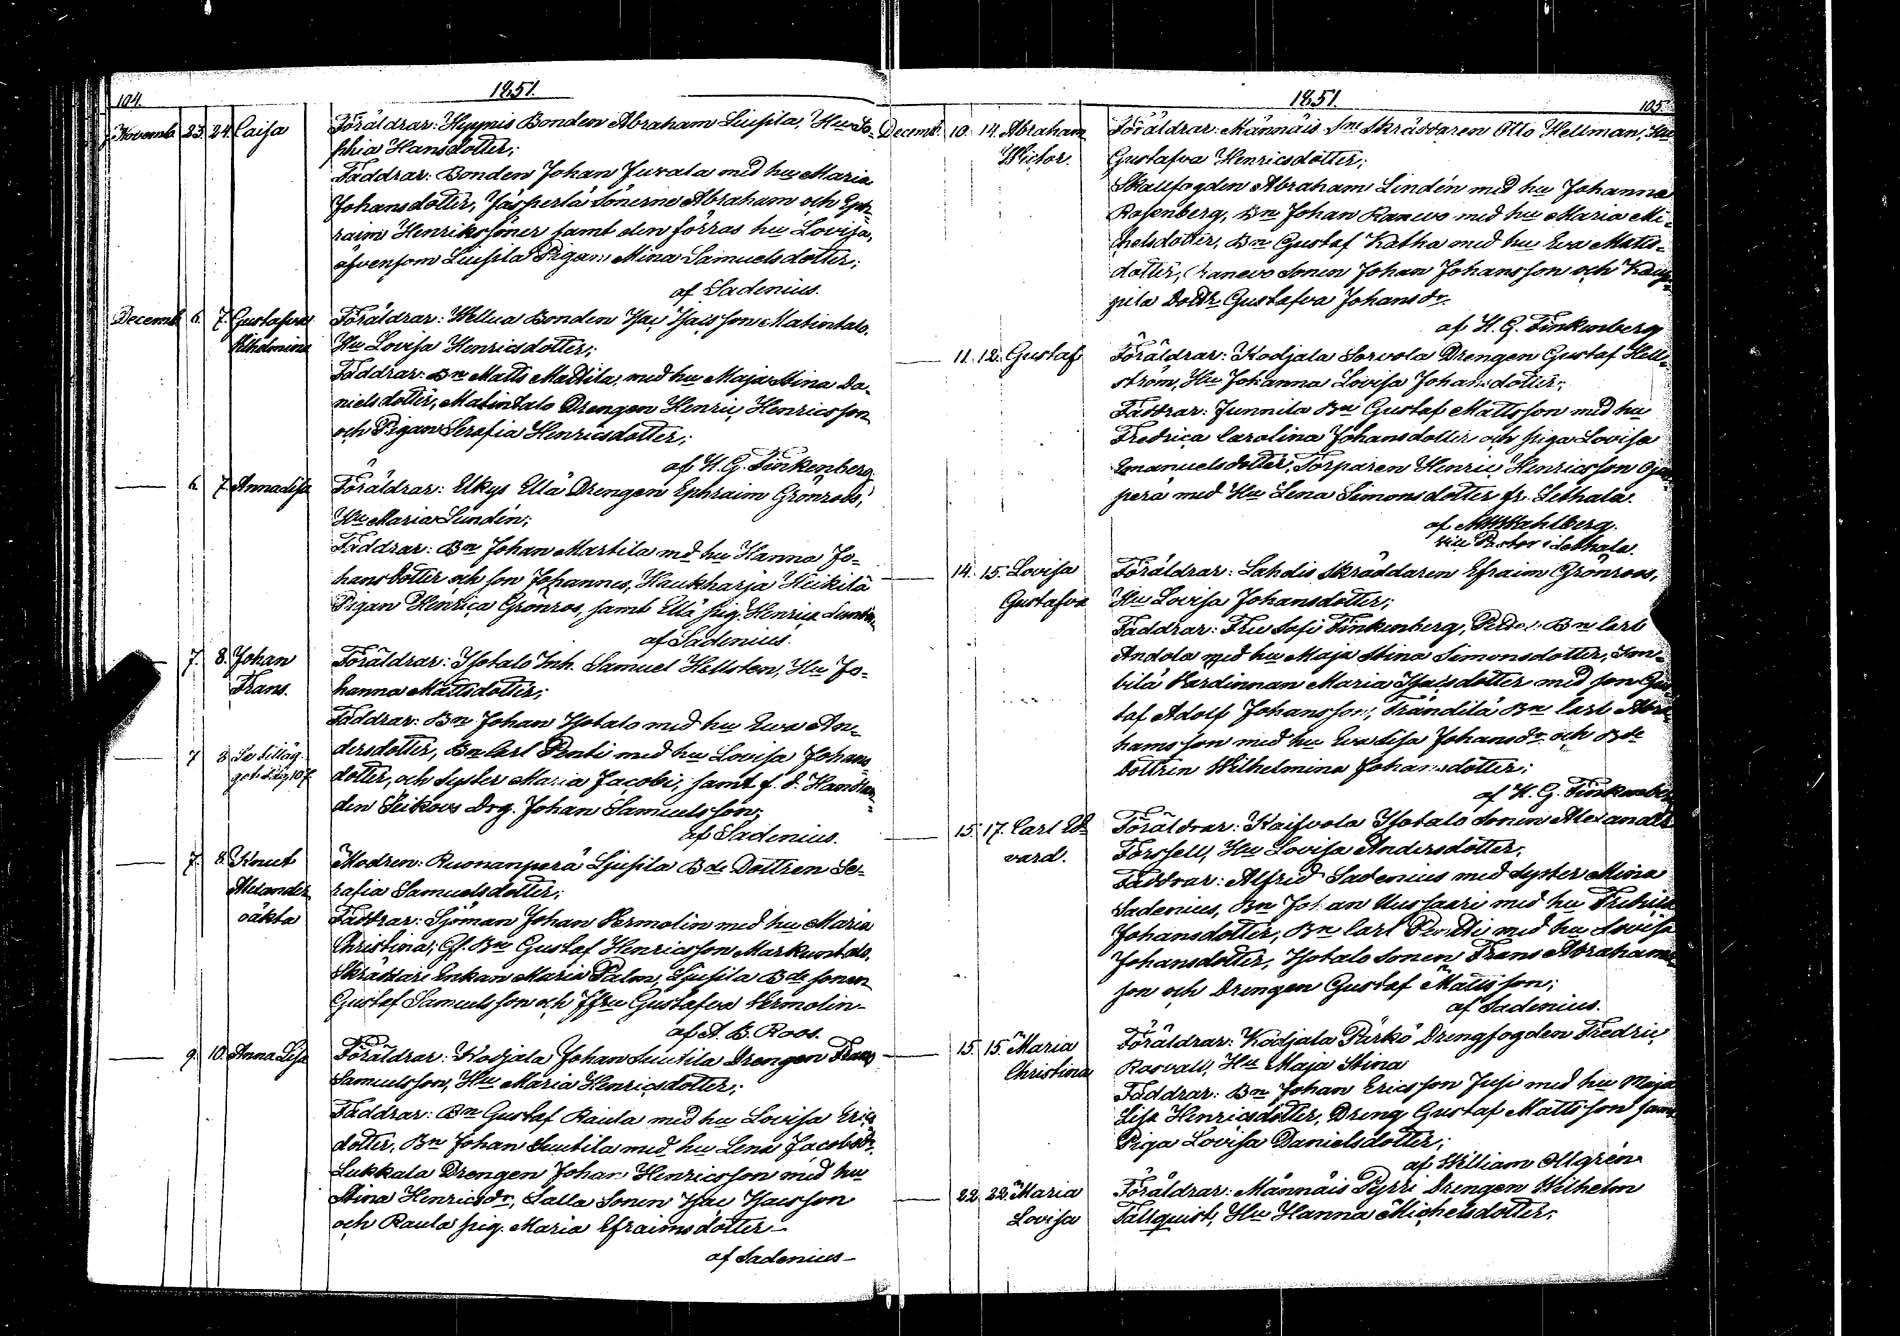 104.
1851.
Novemb. 23. 24. Caisa
Föräldrar: Hyynis Bonden Abraham Liusila, Hu So-
phia Hansdotter;
Faddrar: Bonden Johan Juvala med hu Maria
Johansdotter, Jäsperlä Sönerne Abraham och Eph-
raim Henrikssöner samt den förras hu Lovisa,
äfvensom Liusila Pigan Mina Samuelsdotter;
af Sadenius.
Decemb. 6. 7. Gustafva
Wilhelmina
Föräldrar: Wellua Bonden Isac Isacsson Matintalo.
Hu Lovisa Henricsdotter;
Faddrar: Bn Matts Mattila, med hu Maja Stina Da-
nielsdotter, Matintalo Drengen Henric Henricsson
och Pigan Serafia Henricsdotter;
af H. G. Finkenberg
6. 7. Annalisa
Föräldrar: Elkys Ellä Drengen Ephraim Grönroos,
Hu Maria Lundén;
Faddrar: Bn Johan Martila md hu Hanna Jo-
hansdotter och son Johannes, Haukharja Heikilä
Pigan Henrica Grönros, samt Ellä pig. Henrica
af Sadenius.
7. 8. Johan
Frans.
Föräldrar: Isotalo Inh. Samuel Hellsten, Hu Jo-
hanna Mattsdotter;
Faddrar: Bn Johan Isotalo med hu Ewa An-
dersdotter, Bn Carl Pentti med hu Lovisa Johans
dotter, och syster Maria Jacobi, samt f. d.
den Seikovs Drg. Johan Samuelsson;
af Sadenius.
7 8 Se tilläg-
get Pag 107.
7. 8. Knut
Alexander
oäkta
Modren: Ruonanperä Ljusila Bde Dottren Se-
rafia Samuelsdotter;
Faddrar: Sjöman Johan Vermolin med hu Maria
Christina; Gl. Bn Gustaf Henricsson Markuntalo,
Skräddare Enkan Maria Palm, Ljusila Bde sonen
Gustaf Samuelsson och Jfru Gustafva Vermolin-
af A. B. Roos.
9. 10. Anna Lisa
Föräldrar: Kodjala Johan Suutila Drengen Frans
Samuelsson, Hu Maria Henricsdotter;
Faddrar: Bn Gustaf Raula med hu Lovisa Erics
dotter, Bn Johan Suutila med hu Lena Jacobsdr,
Lukkala Drengen Johan Henricsson med hu
Stina Henricsdr, Salla Sonen Isac Isacsson
och Raula pig. Maria Efraimsdotter-
af Sadenius-
1851.
105.
Decemb. 10. 14. Abraham
Wictor.
Föräldrar: Männäis Skräddaren Otto Hellman, Hu
Gustafva Henricsdotter;
Skallfogden Abraham Lindén med hu Johanna
Rosenberg, Bn Johan Ranevo med hu Maria Mi-
chelsdotter, Bn Gustaf Katha med hu Eva Matts-
dotter, Ranevo Sonen Johan Johansson och Kaup-
pila Dottr. Gustafva Johansdr.
af H. G. Finkenberg
11. 12. Gustaf
Föräldrar: Kodjala Sorvola Drengen Gustaf Hell-
ström, Hu Johanna Lovisa Johansdotter;
Faddrar: Junnila Bn Gustaf Mattsson med hu
Fredrica Carolina Johansdotter och piga Lovisa
Emanuelsdotter, Torparen Henric Henricsson
perä med Hu Lena Simonsdotter fr. Lethala.
af Wahlberg.
vice Pastor i Lethala.
14. 15. Lovisa
Gustafva
Föräldrar: Lahdis Skräddaren Efraim Grönroos,
Hu Lovisa Johansdotter;
Faddrar: Fru Sofi Finkenberg, Bn Carl
Andola med hu Maja Stina Simonsdotter,
bilä Värdinnan Maria Isacsdotter med son Gus-
taf Adolf Johansson; Trändilä Bn Carl Abra-
hamsson med hu Eva Lisa Johansdr. och Bde
Dottren Wilhelmina Johansdotter;
af H. G. Finkenberg
15. 17. Carl Ed-
vard.
Föräldrar: Kaisvola Isotalo Sonen Alexander
Forssell, Hu Lovisa Andersdotter.
Faddrar: Alfred Sadenius med syster Mina
Sadenius, Bn Johan Uussaari med hu
Johansdotter, Bn Carl Pentti med hu Lovisa
Johansdotter, Isotalo Sonen Frans Abrahams-
son och Drengen Gustaf Mattsson;
af Sadenius.
15. 15. Maria
Christina
Föräldrar: Kodjala Pärkö Drengfogden Fredric
Rosvall, Hu Maja Stina
Faddrar: Bn Johan Ericsson Jusi med hu Maja
Lisa Henricsdotter, Dreng Gustaf Mattsson samt
Piga Lovisa Danielsdotter;
af William Ollgrén
22. 22. Maria
Lovisa
Föräldrar: Männäis Pyrri Drengen Wilhelm
Tallquist, Hu Hanna Michelsdotter;